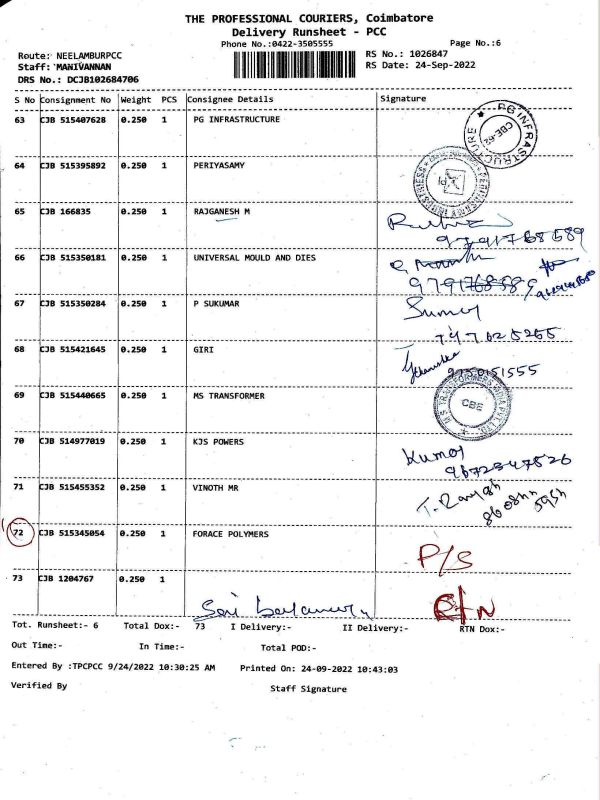 THE PROFESSIONAL COURIERS, Coimbatore
Delivery Runsheet - PCC
Phone No.:0422-3505555
Page No.:6
Route: NEELAMBURPCC
RS No.: 1026847
Staff: MANIVANNAN
RS Date: 24-Sep-2022
DRS No.: DCJB102684706
S No Consignment No Weight PCS Consignee Details Signature
63 CJB 515407628 0.250 1 PG INFRASTRUCTURE
PG INFRASTRUCTURE
CBE-62
64 CJB 515395892 0.250 1 PERIYASAMY
65 CJB 166835 0.250 1 RAJGANESH M
9791768589
66 CJB 515350181 0.250 1 UNIVERSAL MOULD AND DIES
9791768589
67 CJB 515350284 0.250 1 P SUKUMAR
68 CJB 515421645 0.250 1 GIRI
9750151555
69 CJB 515440665 0.250 1 MS TRANSFORMER
CBE
70 CJB 514977019 0.250 1 KJS POWERS
Kumar
71 CJB 515455352 0.250 1 VINOTH MR
72 CJB 515345054 0.250 1 FORACE POLYMERS
P/S
73 CJB 1204767 0.250 1
RTN
Tot. Runsheet:- 6 Total Dox:- 73 I Delivery:- II Delivery:- RTN Dox:-
Out Time:- In Time:- Total POD:-
Entered By :TPCPCC 9/24/2022 10:30:25 AM Printed On: 24-09-2022 10:43:03
Verified By Staff Signature